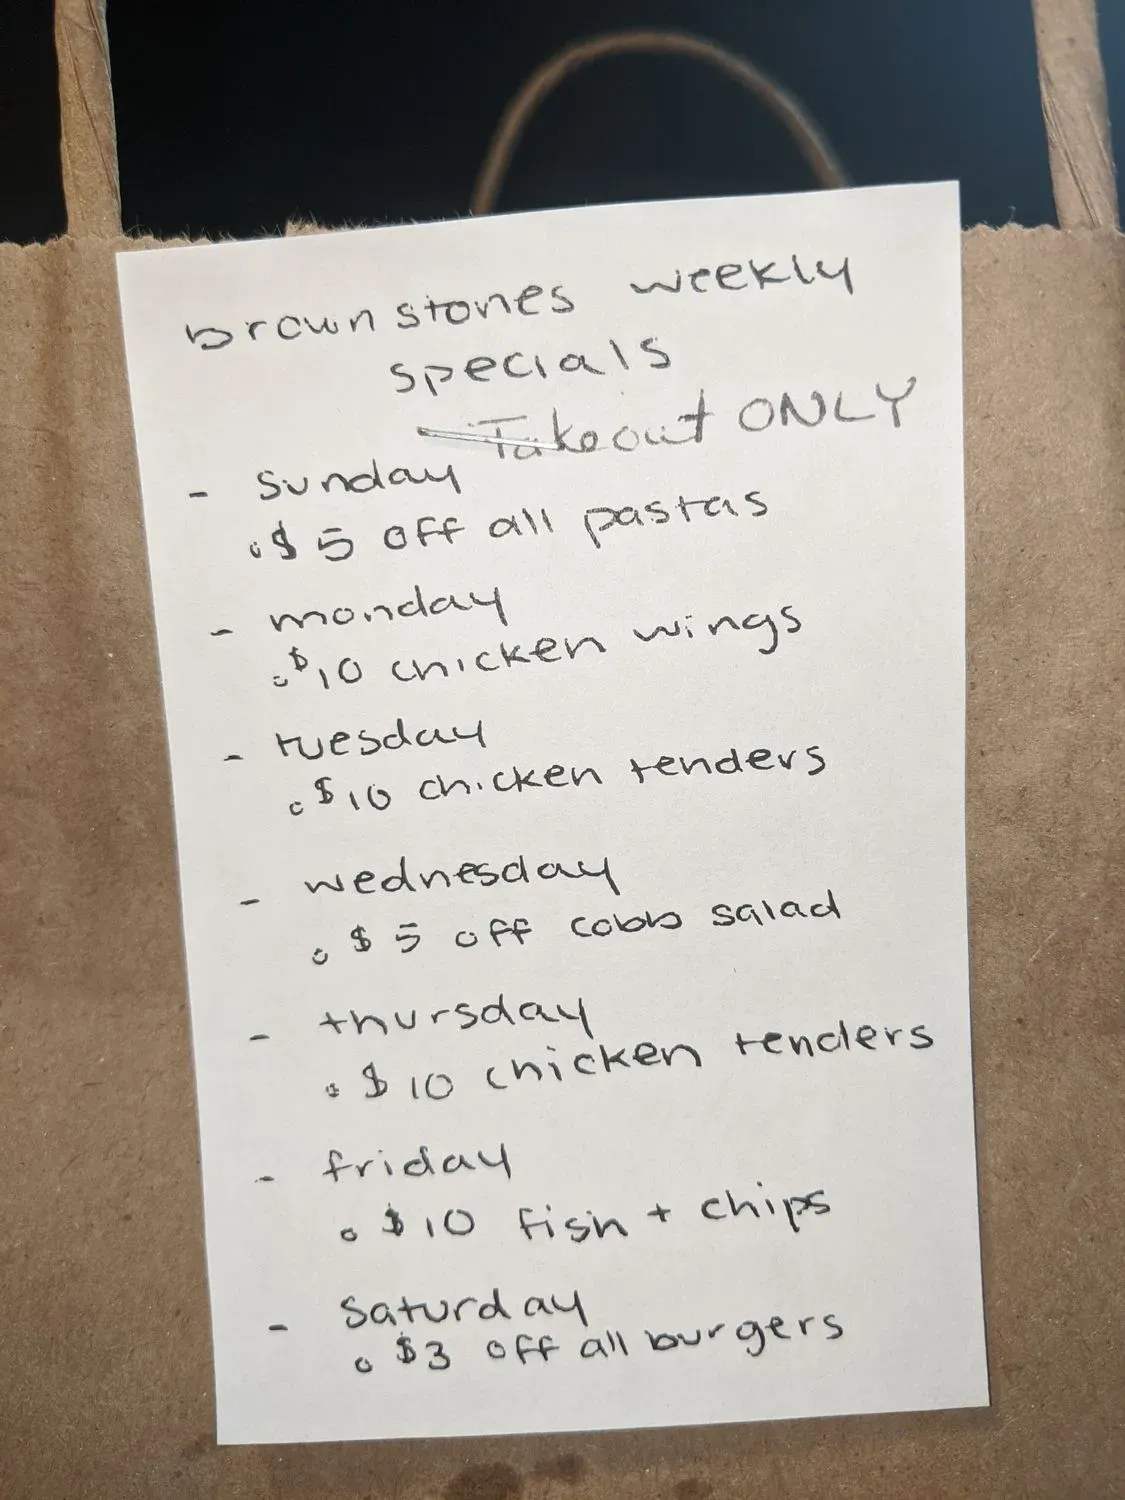 brownstones weekly
specials
Takeout ONLY
- sunday
• $5 off all pastas
- monday
• $10 chicken wings
- tuesday
• $10 chicken tenders
- wednesday
• $5 off cobb salad
- thursday
• $10 chicken tenders
- friday
• $10 fish + chips
- saturday
• $3 off all burgers